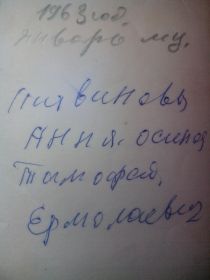 1963 год.
январь му.
Литвиновы
Анна. осипов
Тимофей.
Ермолаевич